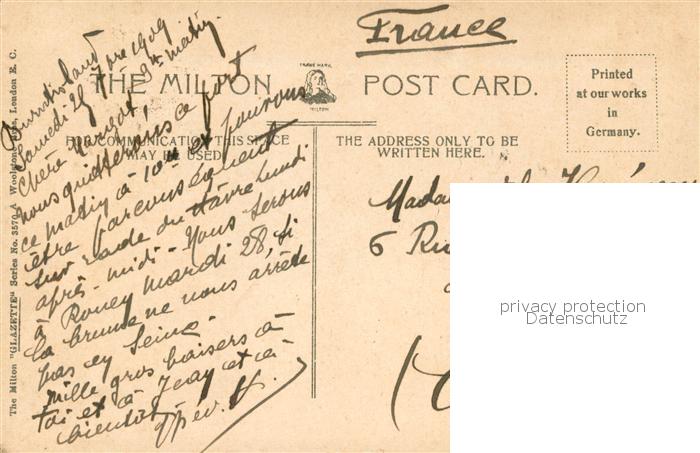 France
THE MILTON POST CARD.
TRADE MARK
MILTON
Printed
at our works
in
Germany.
FOR COMMUNICATION THIS SPACE
MAY BE USED
THE ADDRESS ONLY TO BE
WRITTEN HERE.
The Milton "GLAZETTE" Series No. 3570 London E. C.
Burntisland
Samedi 25 7bre 1909
9h matin.
Chère
nous quitterons ce port
ce matin à 10h et pourrons
être
sur rade du Havre lundi
après-midi - Nous serons
à Rouen mardi 28, si
la brume ne nous arrête
pas en Seine.
mille gros baisers à
toi et à Jean et à
bientôt
Mada
6 Ru
privacy protection
Datenschutz